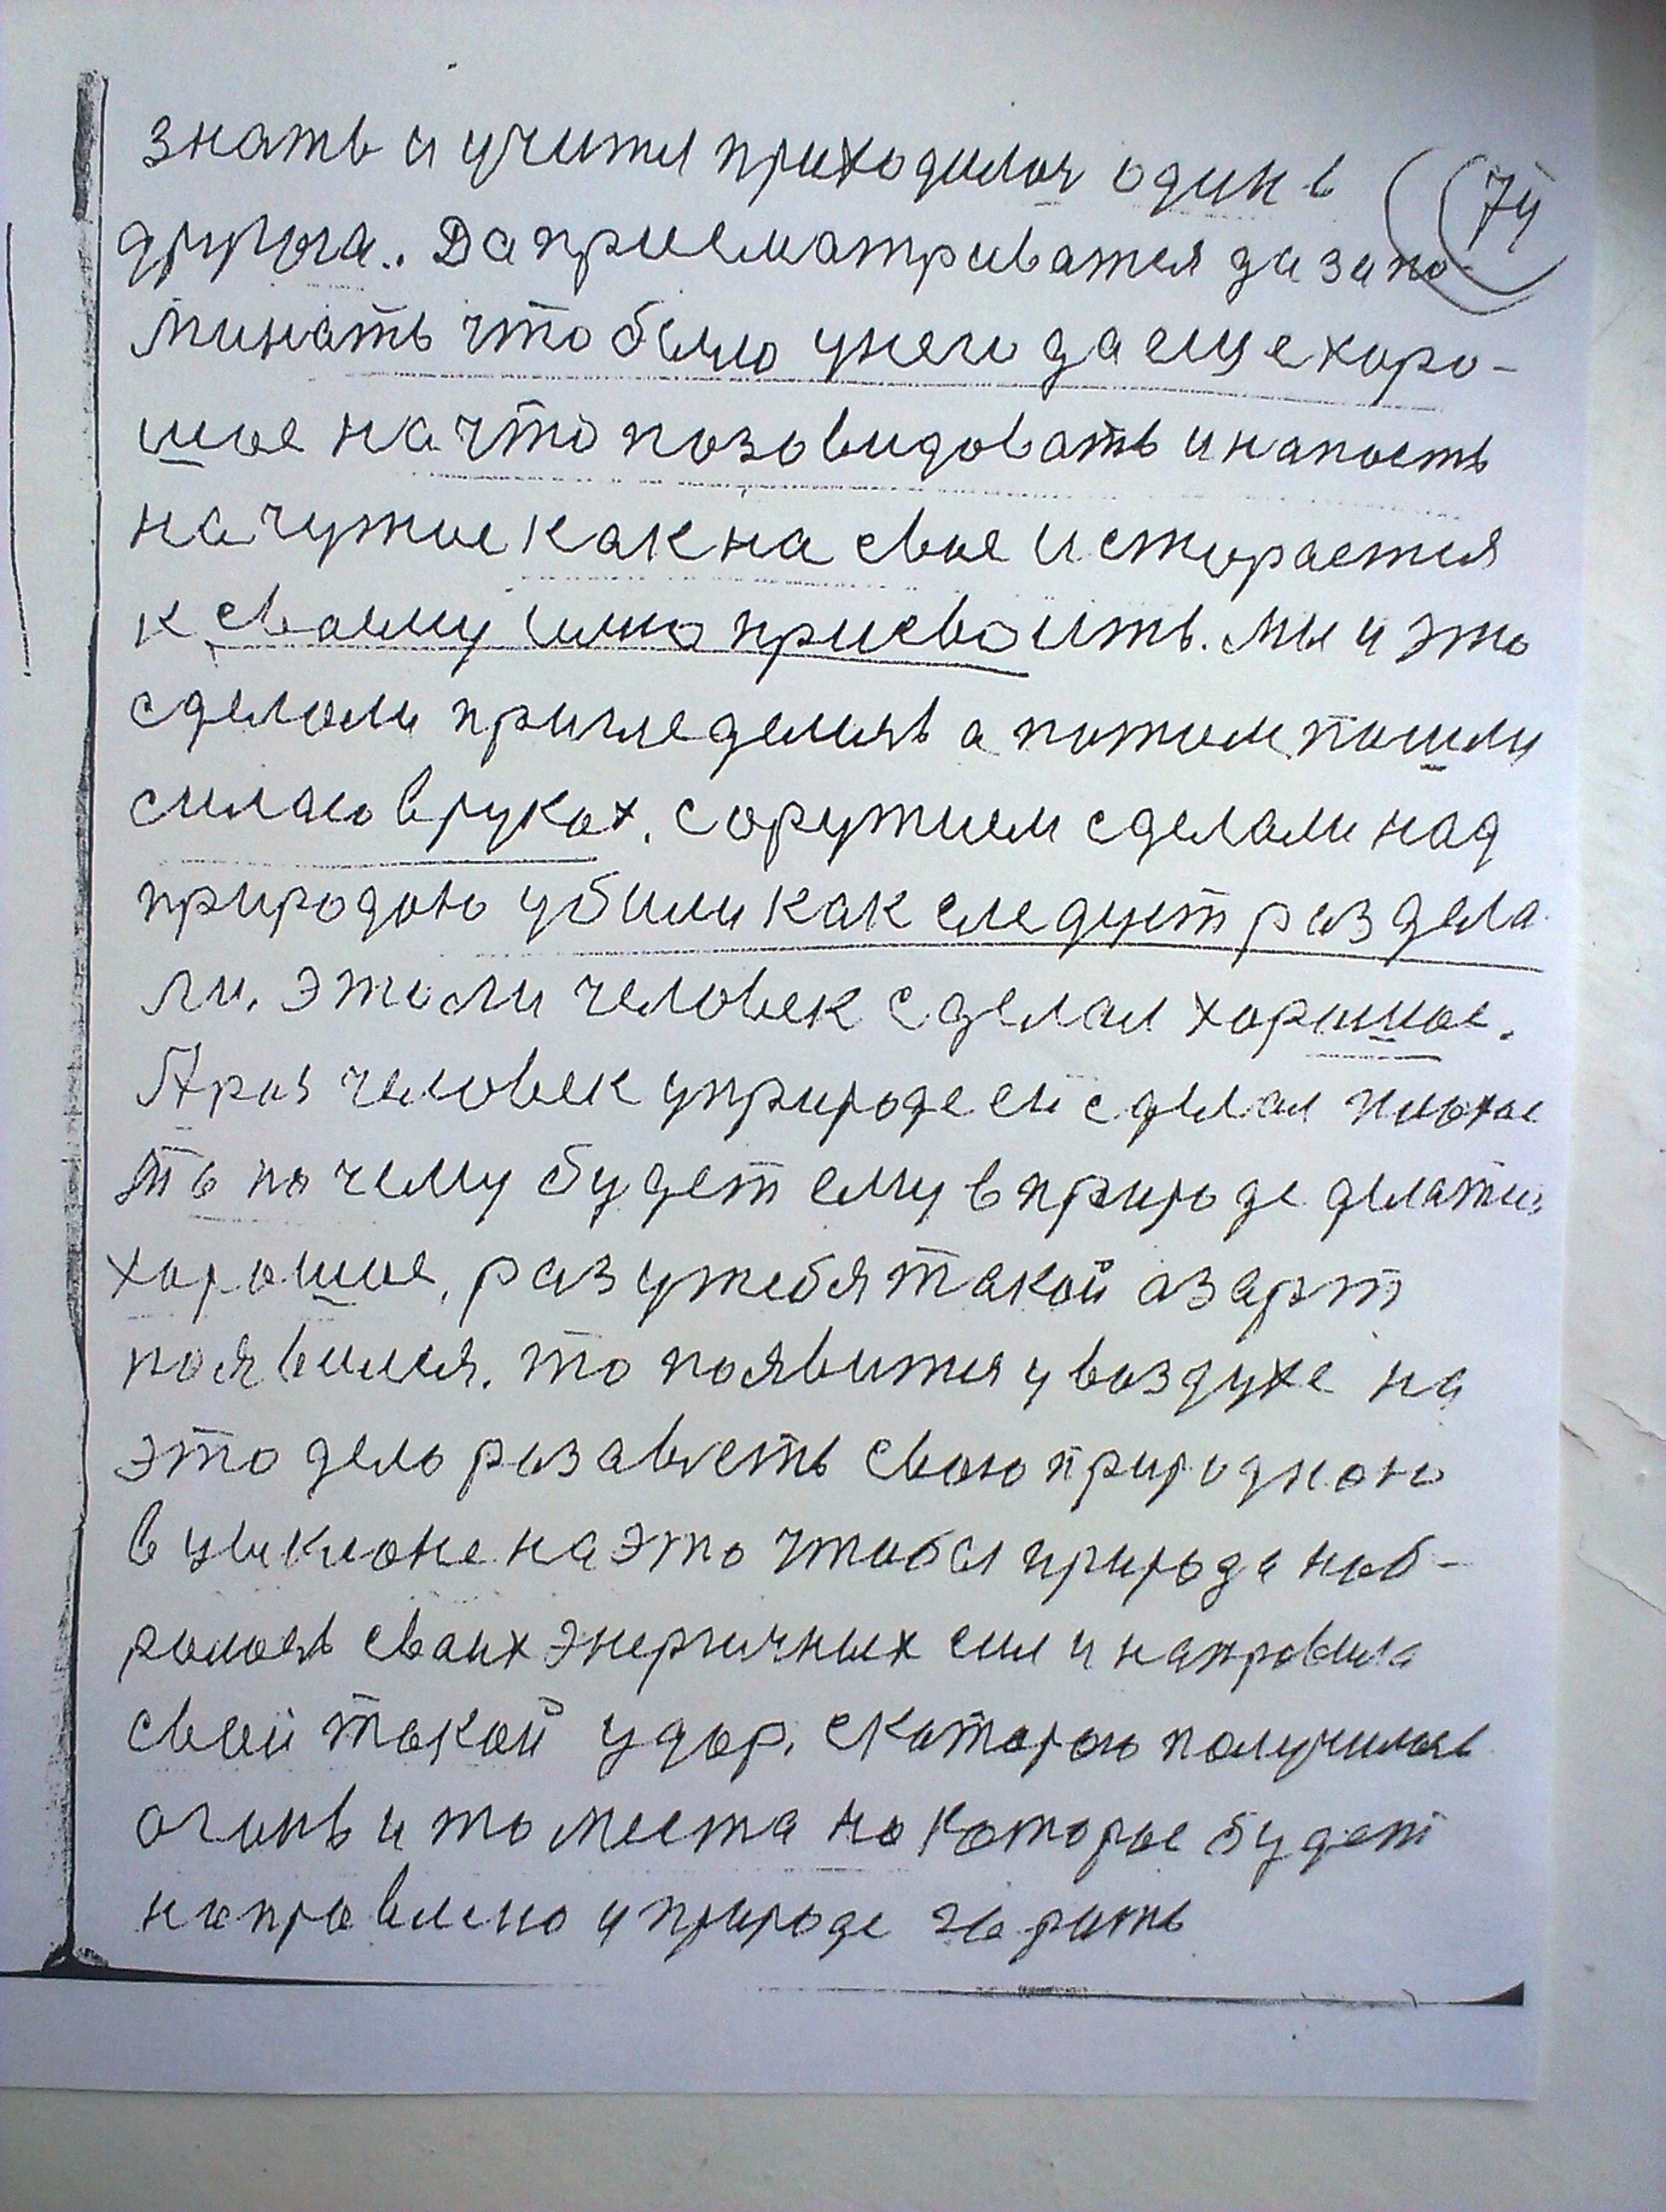 знать и учится приходилося один в
другога.. Да присматриватся да запо-
74
минать что было унего да еще хоро-
шое на что позовидовать и напасть
на чужое как на свое и старается
к своему имю присвоить. Мы и это
сделали пригледелись а потом пошли
силаю в руках. с оружием сделали над
природою убили как следует раздела
ли. это ли человек сделал хорошое.
А раз человек уприроде ей сделал
ть почему будет ему в природе делатись
хорошое, раз утебя такой азарт
появился. то появится у воздухе на
это дело свою природною
в циклоне на это чтобы природа наб-
ралась своих энергичных сил и направила
свой такой удар. скоторою получилась
огинь и то места на которое будет
направлено и природе